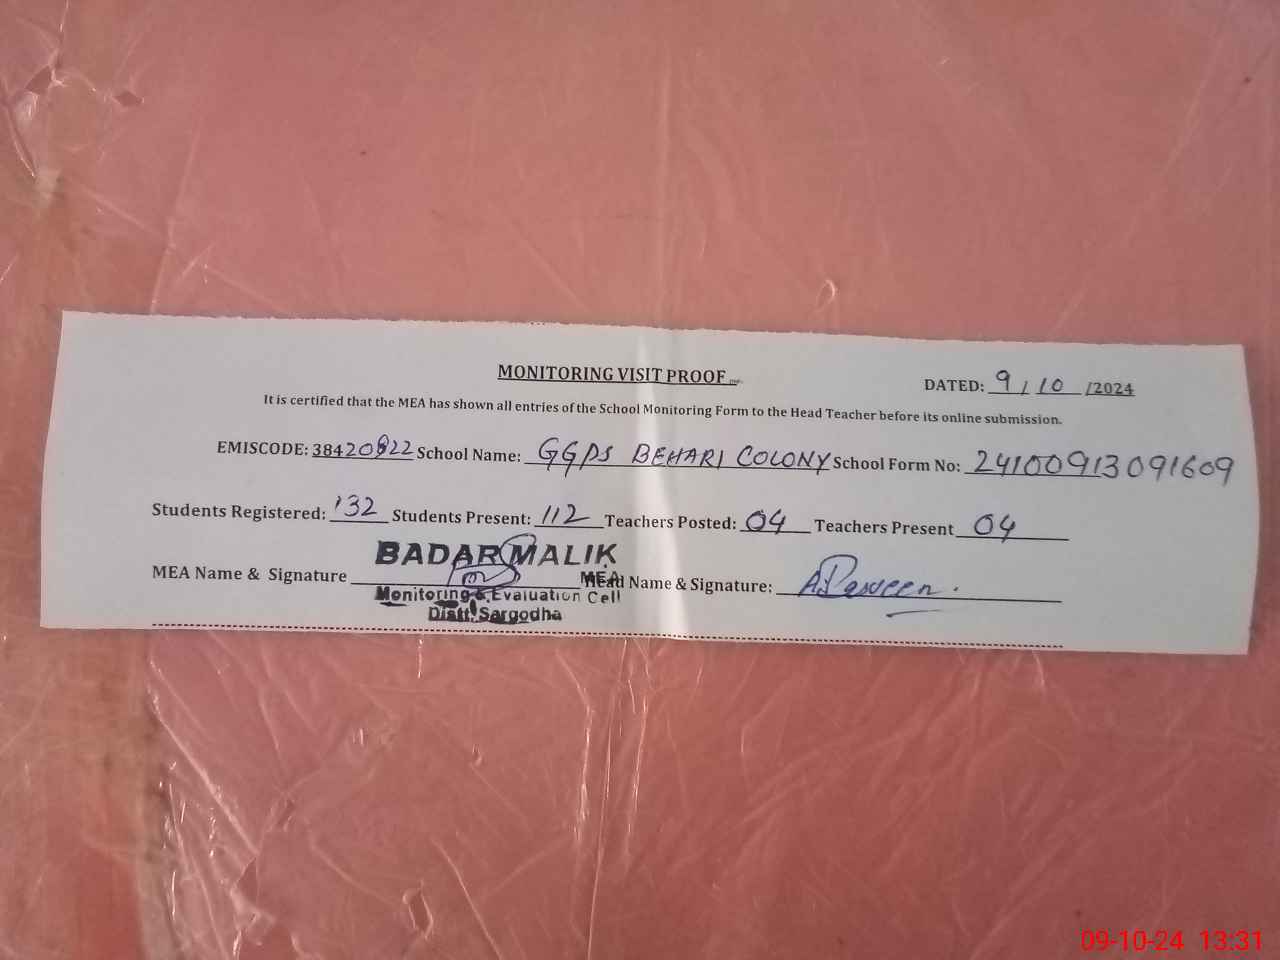 MONITORING VISIT PROOF
DATED: 9/10/2024
It is certified that the MEA has shown all entries of the School Monitoring Form to the Head Teacher before its online submission.
EMISCODE: 38420822 School Name: GGPS BEHARI COLONY School Form No: 24100913091609
Students Registered: 132 Students Present: 112 Teachers Posted: 04 Teachers Present 04
BADAR MALIK
MEA Name & Signature MEA Head Name & Signature: A Parveen.
Monitoring & Evaluation Cell
Distt: Sargodha
09-10-24 13:31